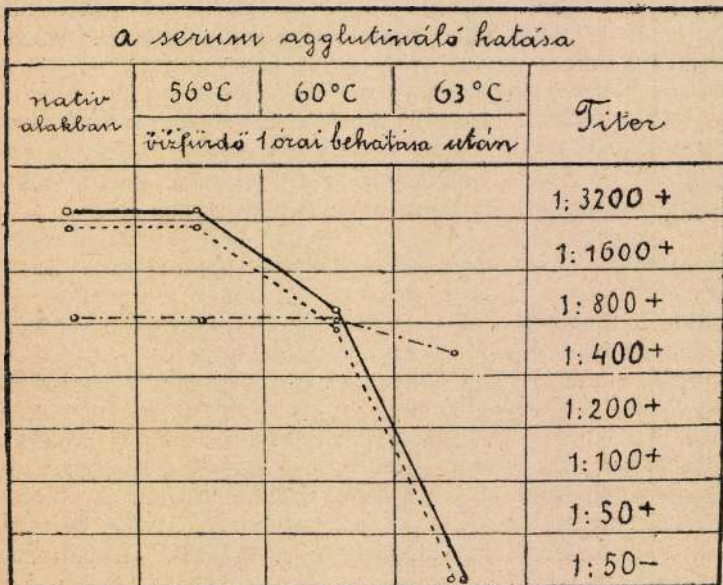 a serum agglutináló hatása
nativ alakban
56°C 60°C 63°C
vízfürdő 1 órai behatása után
Titer
1:3200 +
1:1600+
1:800+
1:400+
1:200+
1:100+
1:50+
1:50-